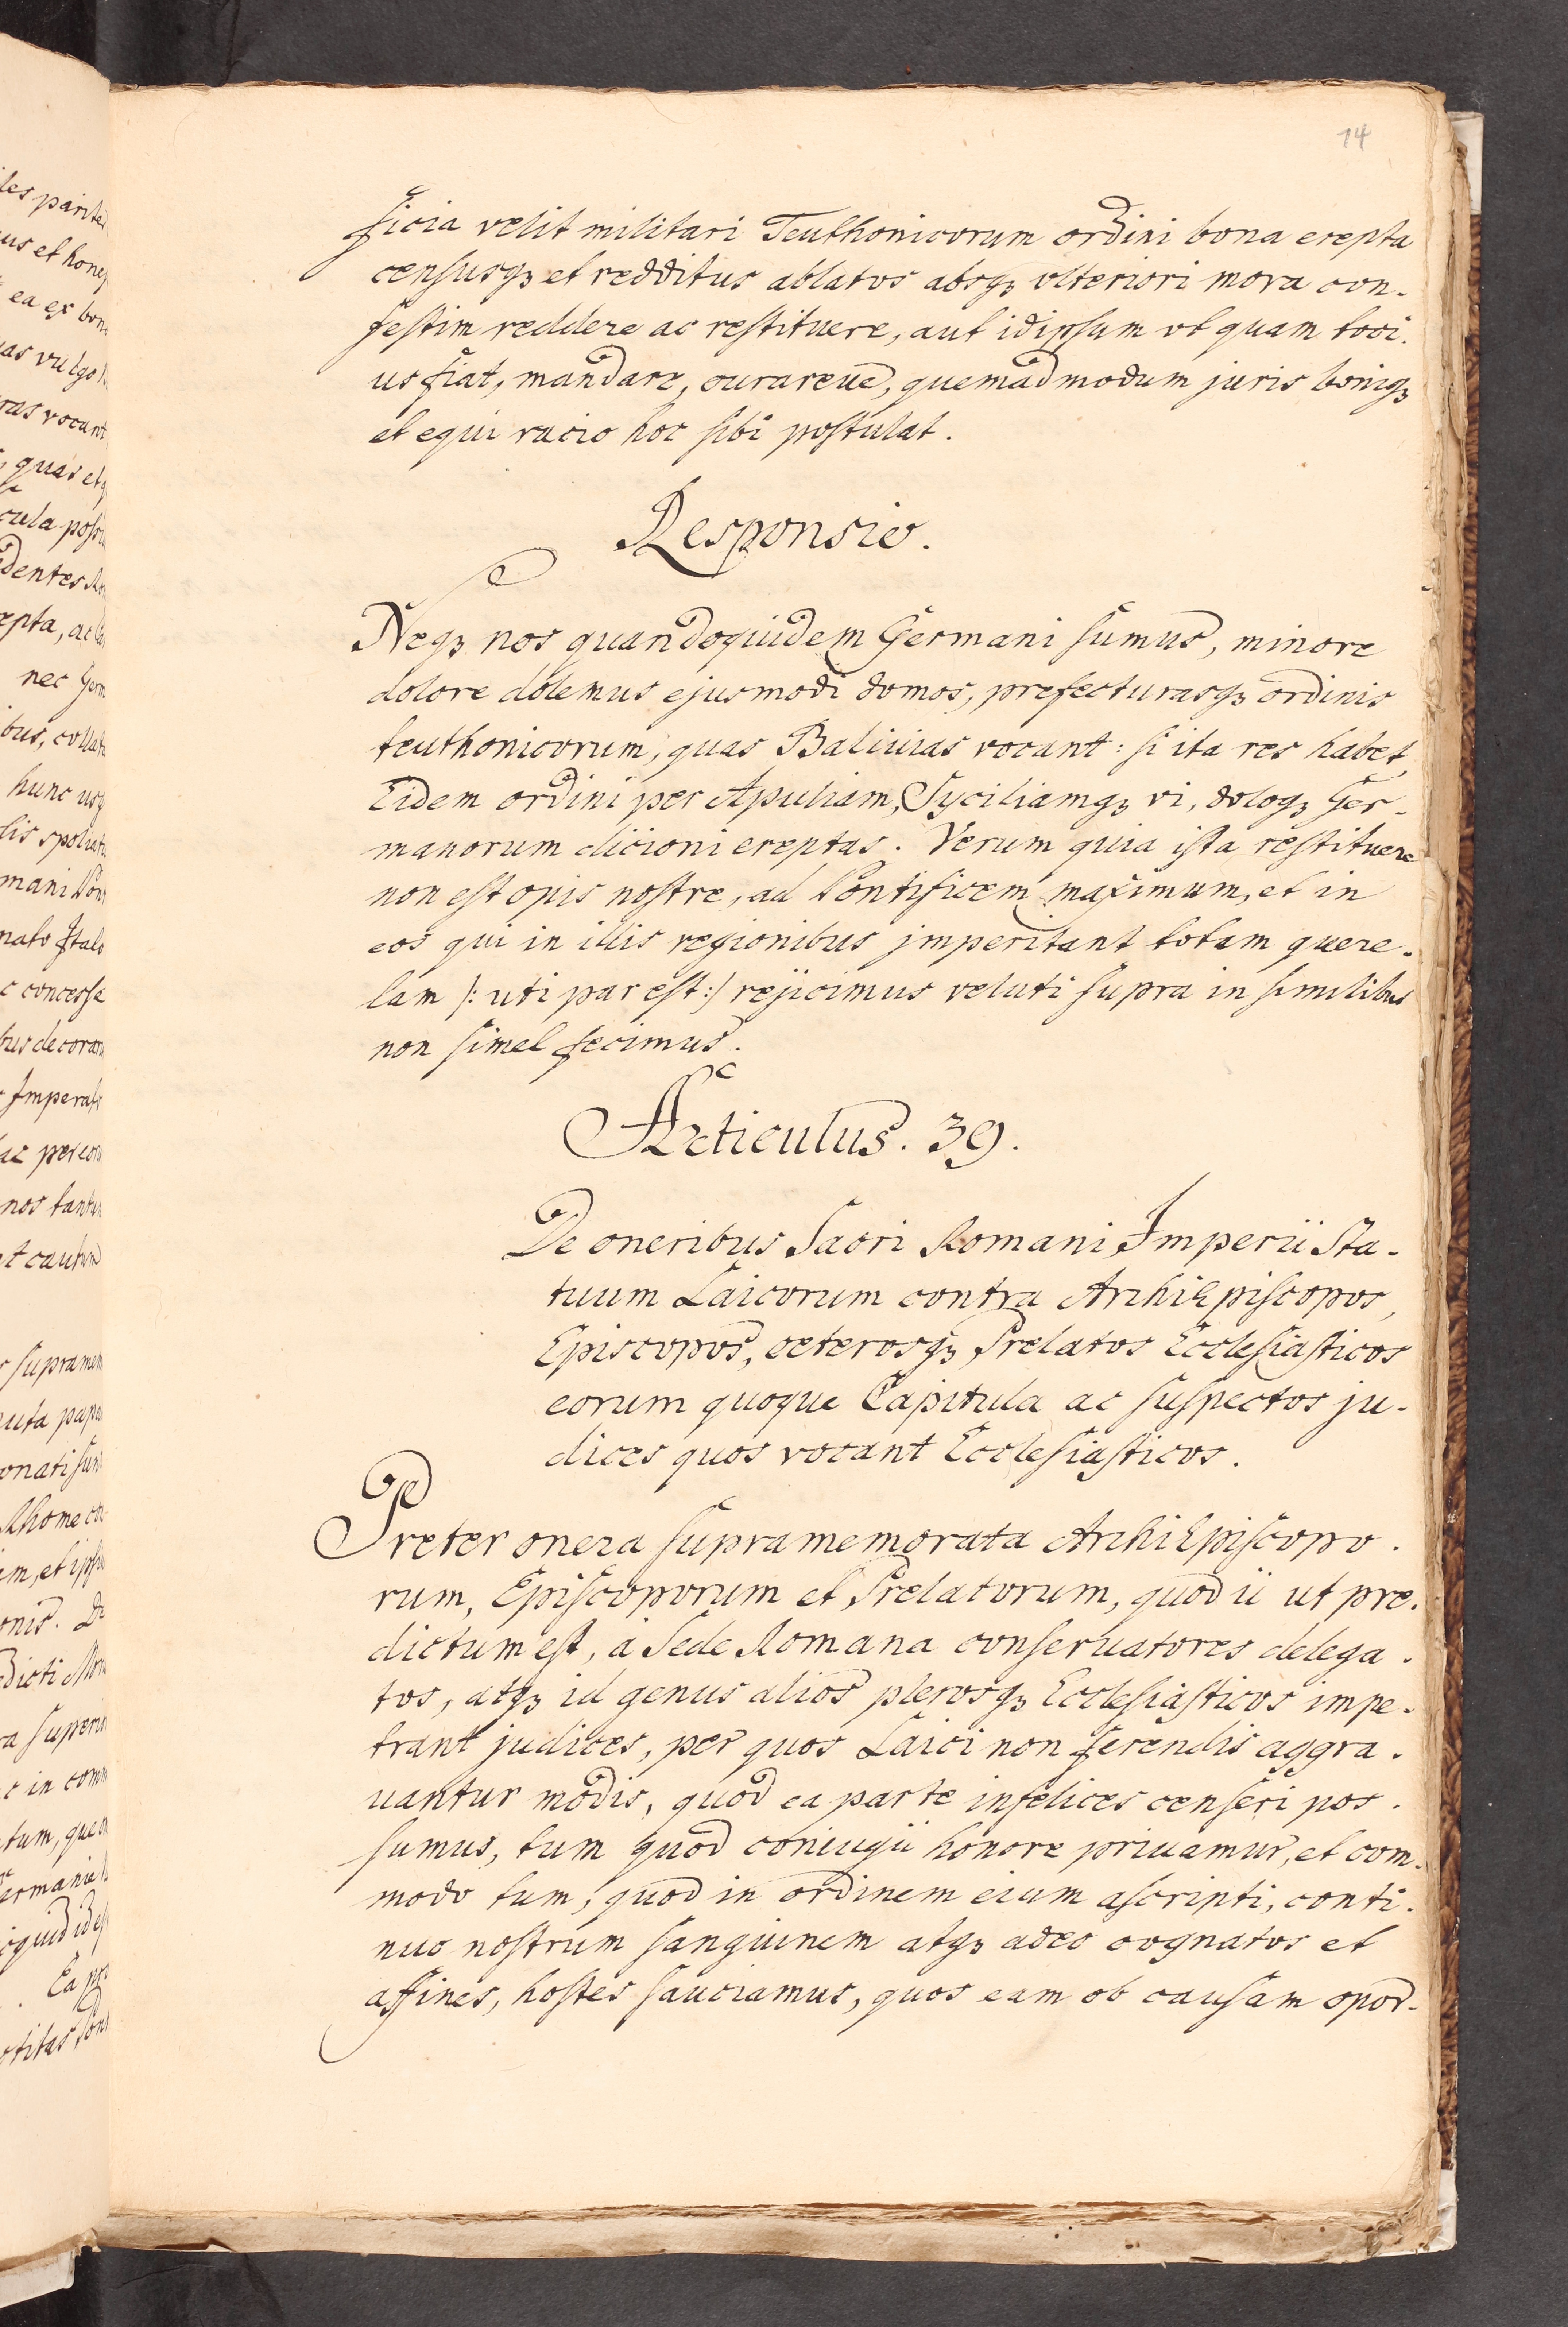 14
ficia velit militari Teuthonicorum ordini bona erepta
censusqꝫ et redditus ablatos absqꝫ vlteriori mora con-
festim reddere ac restituere, aut idipsum vt quam toci-
us fiat, mandare, curareue, quemadmodum juris boniqꝫ
et equi racio hoc sibi postulat.
Responsio.
Neqꝫ nos quandoquidem Germani sumus, minore
dolore dolemus ejusmodi domos, prefecturasqꝫ ordinis
teuthonicorum, quas Baliuias vocant: si ita res habet,
Eidem ordini per Apuliam, Syciliamqꝫ vi, doloqꝫ Ger-
manorum dicioni ereptas. Verum quia ista restituere
non est opis nostre, ad Pontificem maximum, et in
eos qui in illis regionibus jmperitant totam quere-
lam /: uti par est :/ rejicimus veluti supra in similibus
non simel fecimus.
Articulus. 39.
De oneribus Sacri Romani Imperii Sta-
tuum Laicorum contra ArchiEpiscopos,
Episcopos, ceterosqꝫ Prelatos Ecclesiasticos
eorum quoque Capitula ac suspectos ju-
dices quos vocant Ecclesiasticos.
Preter onera supramemorata ArchiEpiscopo-
rum, Episcoporum et Prelatorum, quod ii ut pre-
dictum est, a Sede Romana conseruatores delega-
tos, atqꝫ id genus alios plerosqꝫ Ecclesiasticos impe-
trant judices, per quos Laici non ferendis aggra-
uantur modis, quod ea parte infelices censeri pos-
sumus, tum quod coniugii honore priuamur, et com-
modo tum, quod in ordinem eium ascripti, conti-
nuo nostrum sanguinem atqꝫ adeo cognatos et
affines, hostes sauciamus, quos eam ob causam opor-